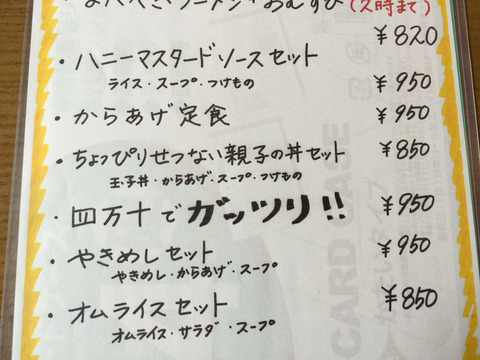 (2時まで)
¥820
・ハニーマスタードソースセット ¥950
ライス・スープ・つけもの
・からあげ定食 ¥950
・ちょっぴりせつない親子の丼セット ¥850
玉子丼・からあげ・スープ・つけもの
・四万十でガッツリ!! ¥950
・やきめしセット ¥950
やきめし・からあげ・スープ
・オムライスセット ¥850
オムライス・サラダ・スープ
CARD CASE